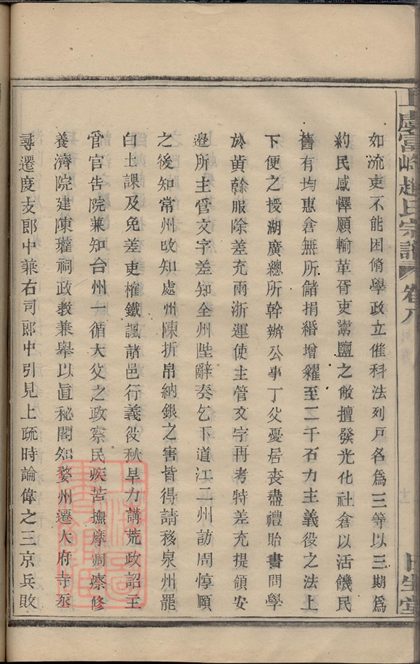 如流吏不能困脩學政立催科法列戶各為三等以三期為
約民咸懌願輸革胥吏鬻鹽之敝擅發光化社倉以活饑民
舊有均惠倉無所儲捐緡增糴至二千石力主義役之法上
下便之授湖廣總所幹辦公事丁父憂居喪盡禮貽書問學
於黃榦服除差充兩浙運使主管文字再考特差充提領安
邊所主管文字差知全州陛辭奏乞下道江二州訪周惇頤
之後知常州改知處州陳折帛納銀之害皆得請移泉州罷
白土課及免差吏榷鐵諷諸邑行義役秋旱力講荒政詔主
管官告院兼知台州一循大父之政察民疾苦撫摩凋瘵修
養濟院建陳瓘祠政教兼舉以直秘閣知婺州遷太府寺丞
尋遷度支郎中兼右司郎中引見上疏時論偉之三京兵敗
上虞 趙氏宗譜 卷八